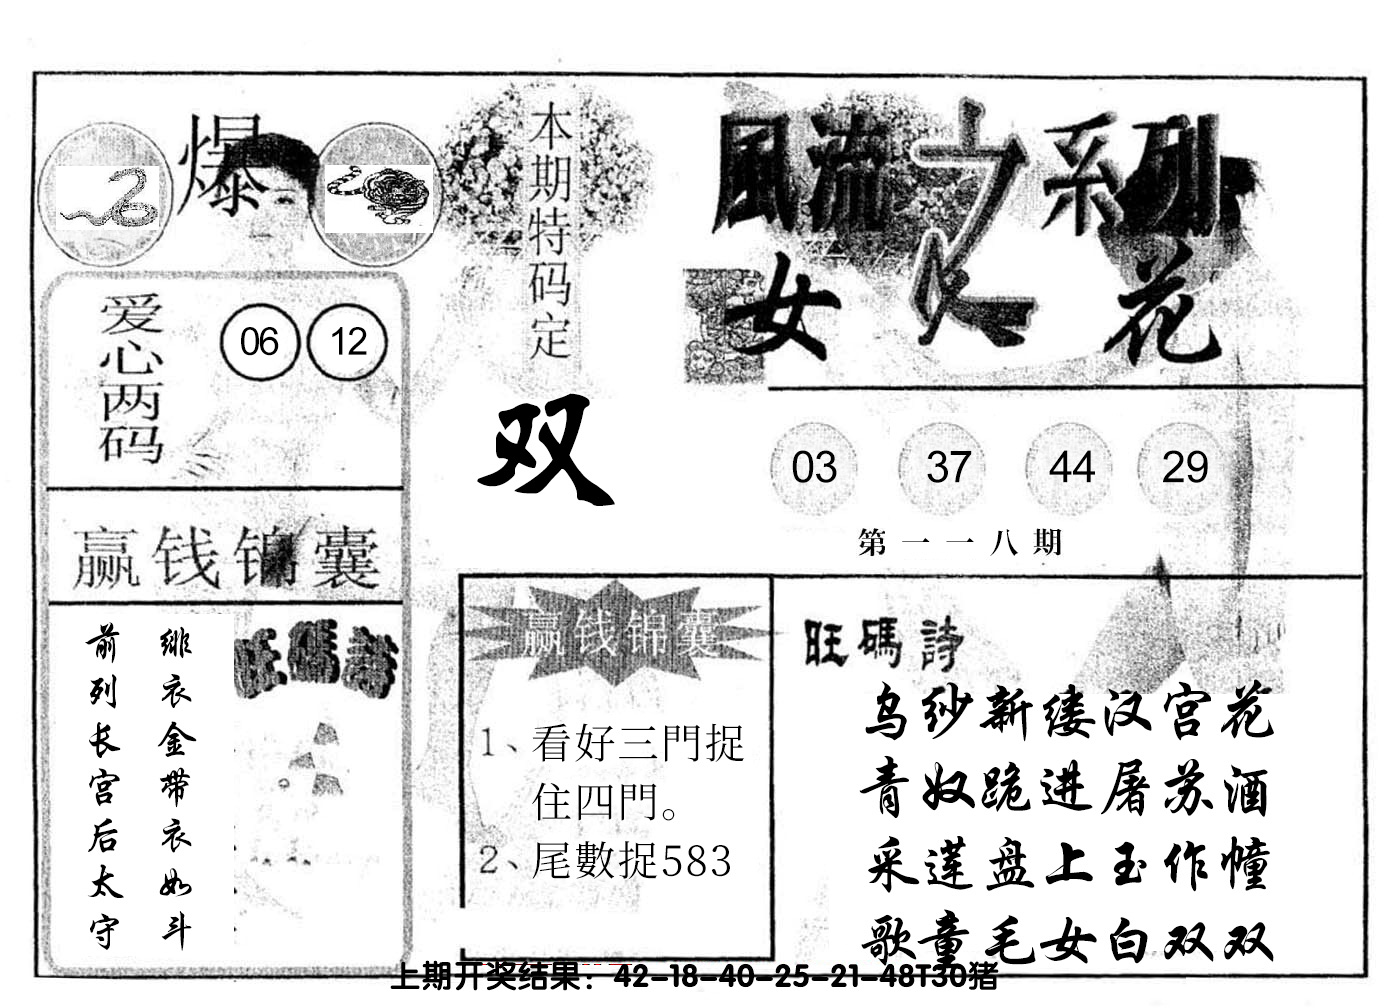 爆
本期特码定
双
風流之系列
女人花
爱心两码
06 12
03 37 44 29
第一一八期
赢钱锦囊
绯衣金带衣如斗
前列长宫后太守
旺碼詩
赢钱锦囊
1、看好三門捉
住四門。
2、尾數捉583
旺碼詩
乌纱新缕汉宫花
青奴跪进屠苏酒
采莲盘上玉作幢
歌童毛女白双双
上期开奖结果：42-18-40-25-21-48T30猪